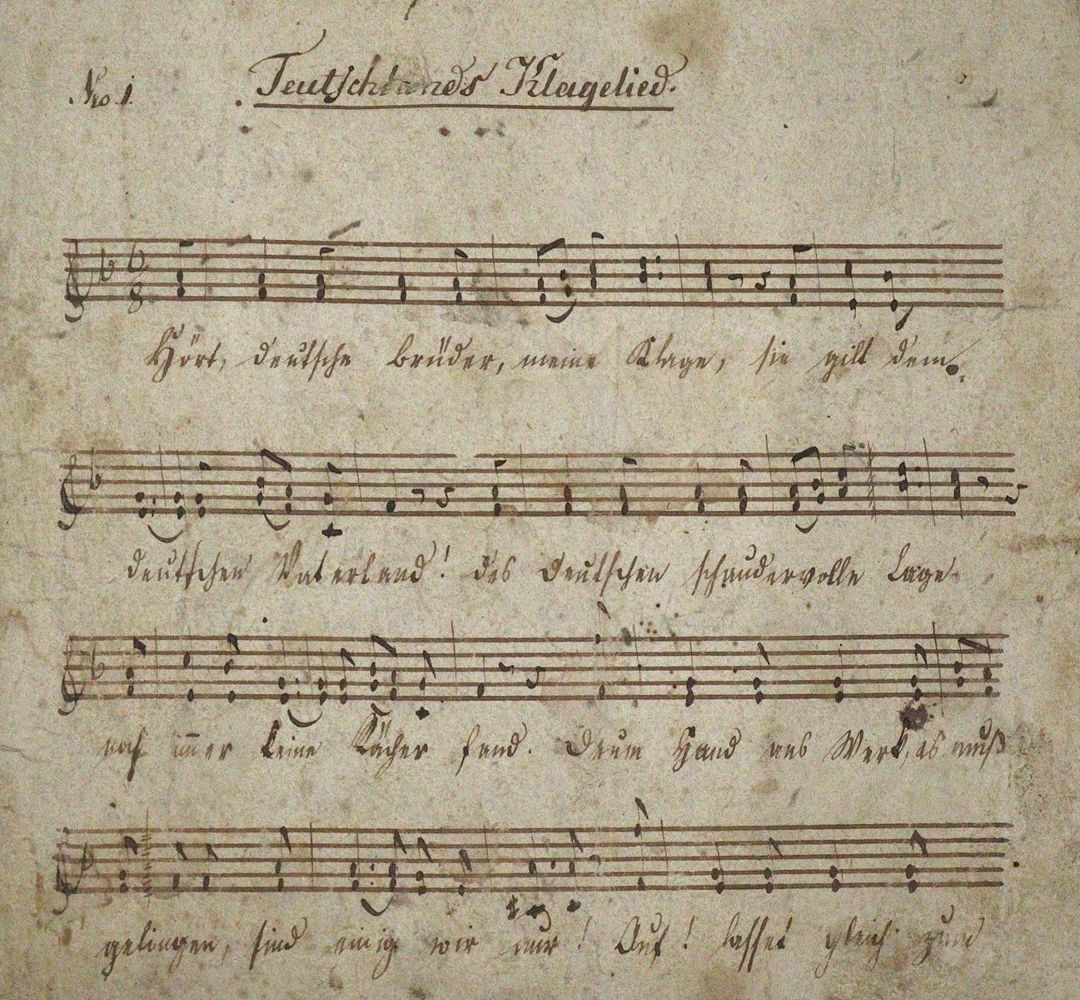 No. 1. Teutschlands Klagelied.
Hört, deutsche brüder, meine Klage, sie gilt dem
deutschen Vaterland! des deutschen schaudervolle Lage
noch im̅er keine Rächer fand. Drum Hand ans Werk, es muß
gelingen, sind einig wir nur! Auf! lasset gleich zum